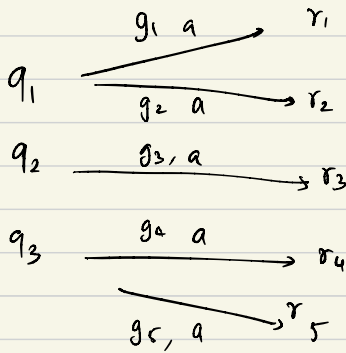 g₁ a r₁
q₁
g₂ a r₂
q₂ g₃, a r₃
q₃ g₄ a r₄
g₅, a r₅